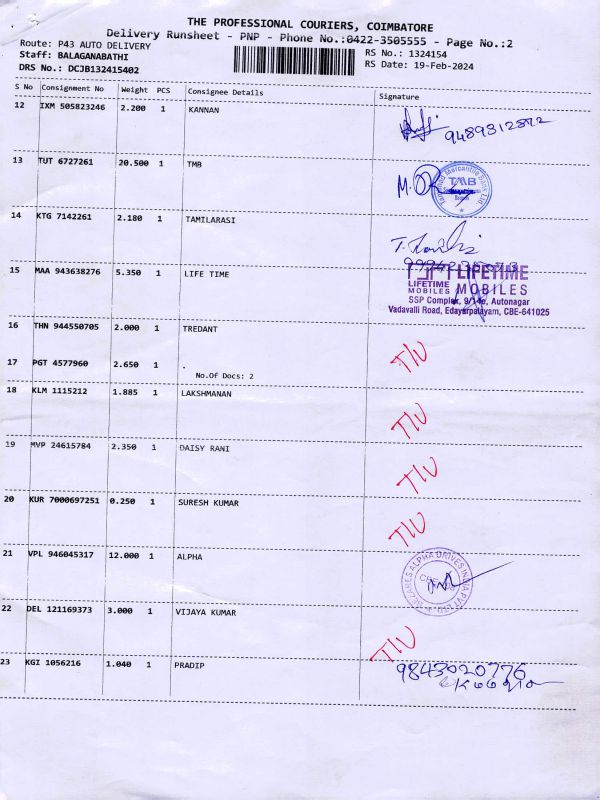 THE PROFESSIONAL COURIERS, COIMBATORE
Delivery Runsheet - PNP - Phone No.:0422-3505555 - Page No.:2
Route: P43 AUTO DELIVERY
Staff: BALAGANABATHI
DRS No.: DCJB132415402
RS No.: 1324154
RS Date: 19-Feb-2024
S No Consignment No Weight PCS Consignee Details Signature
12 IXM 505823246 2.200 1 KANNAN
9489312872
13 TUT 6727261 20.500 1 TMB
TMB
14 KTG 7142261 2.180 1 TAMILARASI
15 MAA 943638276 5.350 1 LIFE TIME
LIFETIME
LIFETIME MOBILES
MOBILES
SSP Complex, 9/14e, Autonagar
Vadavalli Road, Edayarpalayam, CBE-641025
16 THN 944550705 2.000 1 TREDANT
17 PGT 4577960 2.650 1 .
No.Of Docs: 2
T/U
18 KLM 1115212 1.885 1 LAKSHMANAN
T/U
19 MVP 24615784 2.350 1 DAISY RANI
T/U
20 KUR 7000697251 0.250 1 SURESH KUMAR
T/U
21 VPL 946045317 12.000 1 ALPHA
22 DEL 121169373 3.000 1 VIJAYA KUMAR
T/U
23 KGI 1056216 1.040 1 PRADIP
9843020776